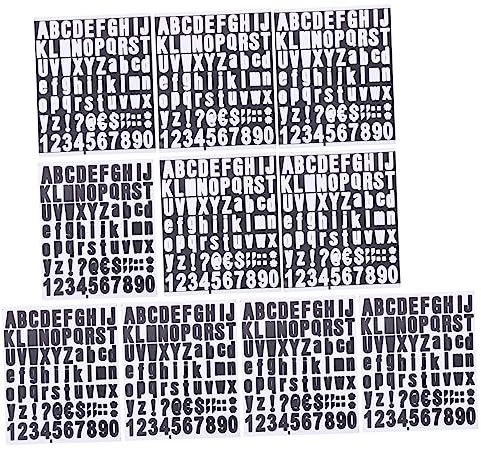 ABCDEFGHIJ
KLMNOPQRST
UVWXYZabcd
efghijklmn
opqrstuvwx
yz!?@€$
1234567890
ABCDEFGHIJ
KLMNOPQRST
UVWXYZabcd
efghijklmn
opqrstuvwx
yz!?@€$
1234567890
ABCDEFGHIJ
KLMNOPQRST
UVWXYZabcd
efghijklmn
opqrstuvwx
yz!?@€$
1234567890
ABCDEFGHIJ
KLMNOPQRST
UVWXYZabcd
efghijklmn
opqrstuvwx
yz!?@€$
1234567890
ABCDEFGHIJ
KLMNOPQRST
UVWXYZabcd
efghijklmn
opqrstuvwx
yz!?@€$
1234567890
ABCDEFGHIJ
KLMNOPQRST
UVWXYZabcd
efghijklmn
opqrstuvwx
yz!?@€$
1234567890
ABCDEFGHIJ
KLMNOPQRST
UVWXYZabcd
efghijklmn
opqrstuvwx
yz!?@€$
1234567890
ABCDEFGHIJ
KLMNOPQRST
UVWXYZabcd
efghijklmn
opqrstuvwx
yz!?@€$
1234567890
ABCDEFGHIJ
KLMNOPQRST
UVWXYZabcd
efghijklmn
opqrstuvwx
yz!?@€$
1234567890
ABCDEFGHIJ
KLMNOPQRST
UVWXYZabcd
efghijklmn
opqrstuvwx
yz!?@€$
1234567890